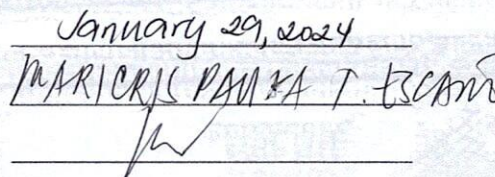 January 29, 2024
MARICRIS PAULA T. ESCAÑO